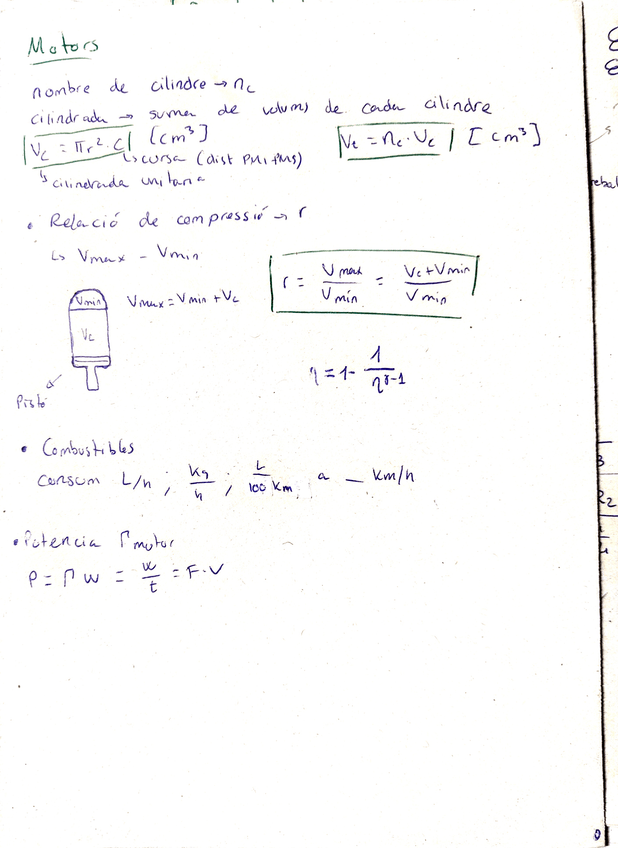 Motors
nombre de cilindre → nc
cilindrada → suma de volums de cada cilindre
Vc = πr²·c [cm³]
Vt = nc·Vc [cm³]
↳ cursa (dist PMI+PMS)
↳ cilindrada unitaria
• Relació de compressió → r
↳ Vmax – Vmin
r = Vmax/Vmin = Vc+Vmin/Vmin
Vmin
Vmax = Vmin + Vc
Vc
Pistó
η = 1 - 1/η^γ-1
• Combustibles
consum L/h ; kg/h ; L/100 km a _ km/h
• Potencia Γmotor
P = Γ w = W/t = F·V